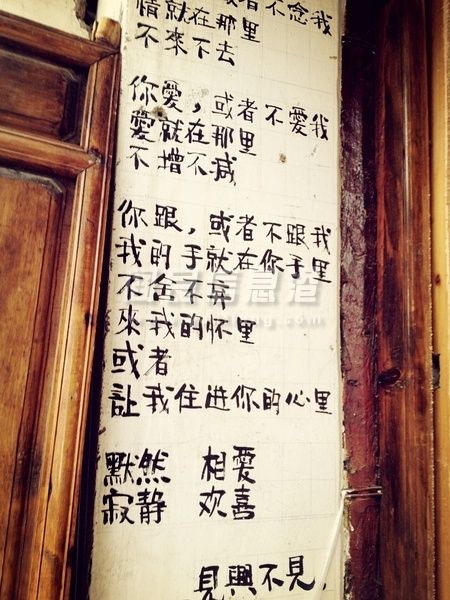 或者不念我
情就在那里
不來下去
你愛，或者不愛我
愛就在那里
不增不減
你跟，或者不跟我
我的手就在你手里
不舍不弃
來我的怀里
或者
让我住进你的心里
默然 相愛
寂静 欢喜
見與不見，